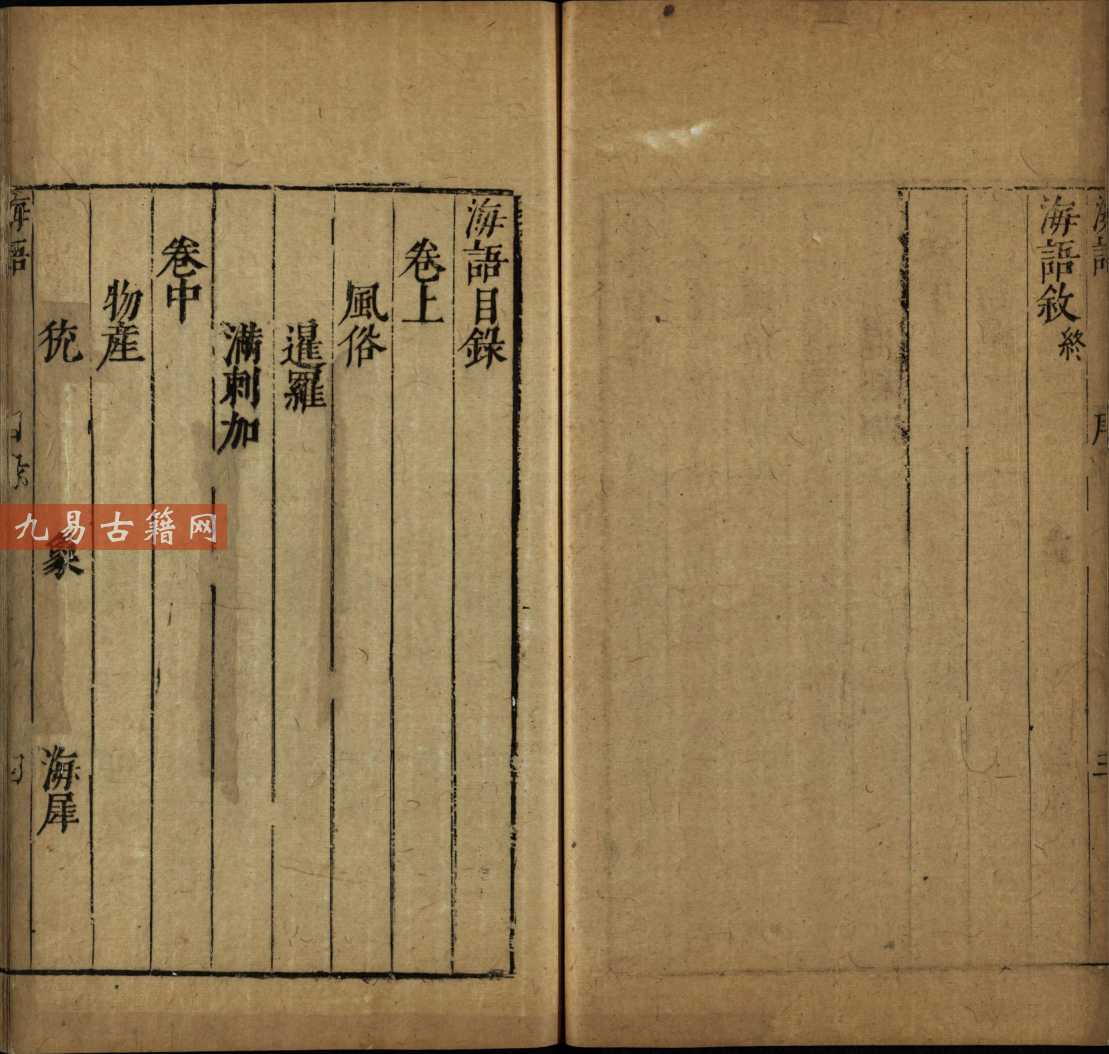 海語敘終
海語目錄
卷上
風俗
暹羅
滿剌加
卷中
物產
象 海犀
海語
九易古籍网